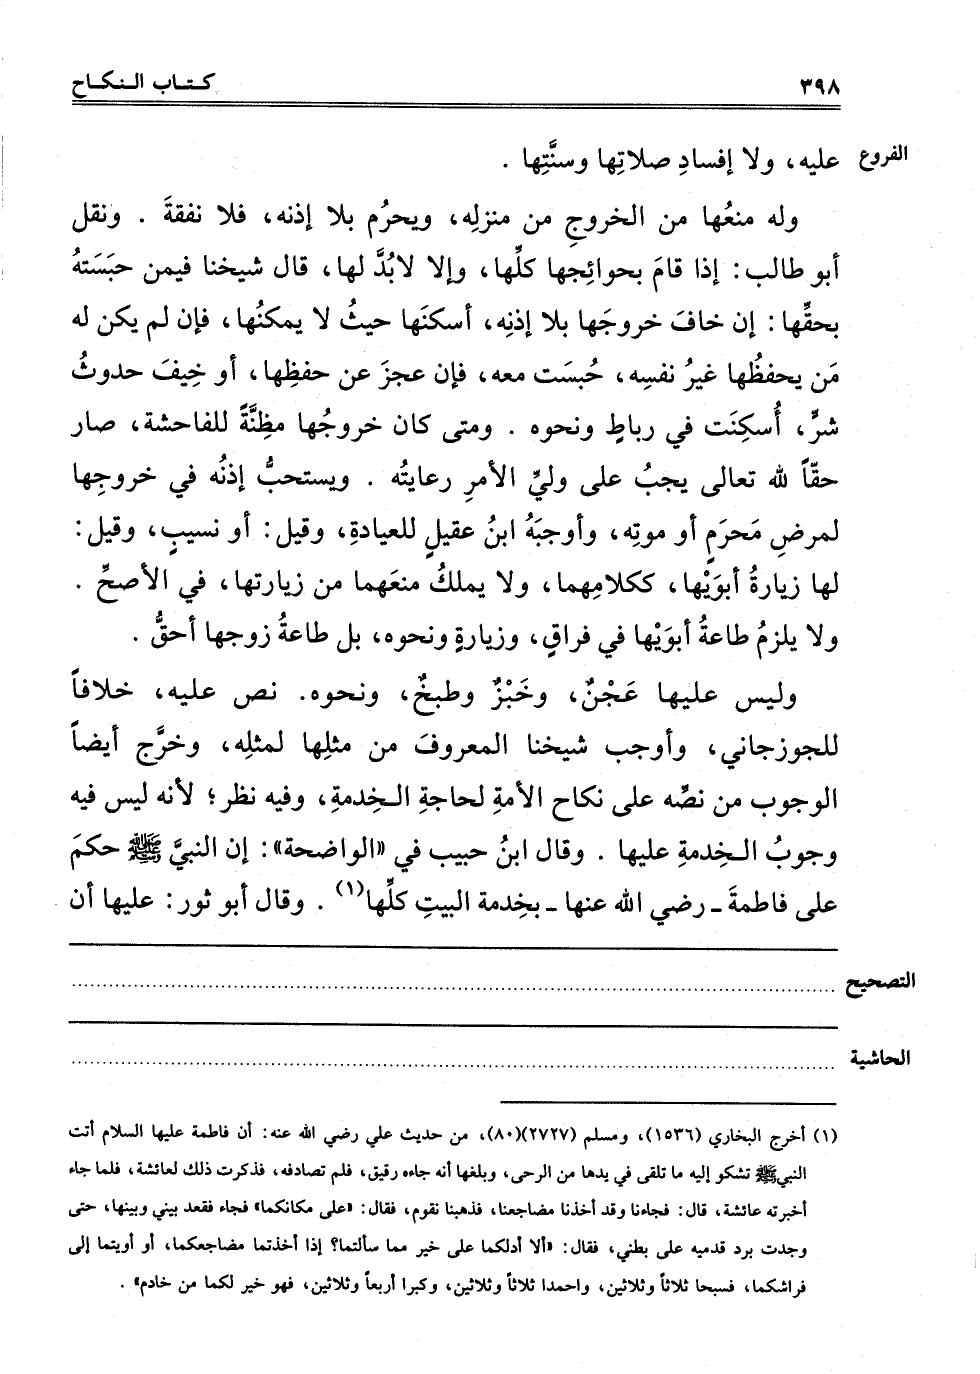 ٣٩٨ كتاب النكاح
الفروع عليه، ولا إفسادِ صلاتِها وسنَّتِها .
وله منعُها من الخروجِ من منزلِه، ويحرُم بلا إذنه، فلا نفقةَ . ونقل
أبو طالب: إذا قامَ بحوائِجها كلِّها، وإلا لابُدَّ لها، قال شيخنا فيمن حبَسَتهُ
بحقِّها: إن خافَ خروجَها بلا إذنِه، أسكنَها حيثُ لا يمكنُها، فإن لم يكن له
مَن يحفظُها غيرُ نفسِه، حُبسَت معه، فإن عجزَ عن حفظِها، أو خِيفَ حدوثُ
شرٍّ، أُسكِنَت في رباطٍ ونحوه . ومتى كان خروجُها مظِنَّةً للفاحشة، صار
حقّاً لله تعالى يجبُ على وليِّ الأمرِ رعايتُه . ويستحبُّ إذنُه في خروجِها
لمرضِ مَحرَمٍ أو موتِه، وأوجبَهُ ابنُ عقيلٍ للعيادةِ، وقيل: أو نسيبٍ، وقيل:
لها زيارةُ أبوَيْها، ككلامِهما، ولا يملكُ منعَهما من زيارتها، في الأصحِّ .
ولا يلزمُ طاعةُ أبوَيْها في فراقٍ، وزيارةٍ ونحوه، بل طاعةُ زوجها أحقُّ .
وليس عليها عَجْنٌ، وخَبْزٌ وطبخٌ، ونحوه. نص عليه، خلافاً
للجوزجاني، وأوجب شيخنا المعروفَ من مثلِها لمثلِه، وخرَّج أيضاً
الوجوب من نصِّه على نكاح الأمةِ لحاجةِ الخِدمةِ، وفيه نظر؛ لأنه ليس فيه
وجوبُ الخِدمةِ عليها . وقال ابنُ حبيب في «الواضحة»: إن النبيَّ ﷺ حكمَ
على فاطمةَ ـ رضي الله عنها ـ بخِدمة البيتِ كلِّها(١) . وقال أبو ثور: عليها أن
التصحيح ................................................
الحاشية ................................................
(١) أخرج البخاري (١٥٣٦)، ومسلم (٢٧٢٧)(٨٠)، من حديث علي رضي الله عنه: أن فاطمة عليها السلام أتت
النبي ﷺ تشكو إليه ما تلقى في يدها من الرحى، وبلغها أنه جاءه رقيق، فلم تصادفه، فذكرت ذلك لعائشة، فلما جاء
أخبرته عائشة، قال: فجاءنا وقد أخذنا مضاجعنا، فذهبنا نقوم، فقال: «على مكانكما» فجاء فقعد بيني وبينها، حتى
وجدت برد قدميه على بطني، فقال: «ألا أدلكما على خير مما سألتما؟ إذا أخذتما مضاجعكما، أو أويتما إلى
فراشكما، فسبحا ثلاثاً وثلاثين، واحمدا ثلاثاً وثلاثين، وكبرا أربعاً وثلاثين، فهو خير لكما من خادم» .